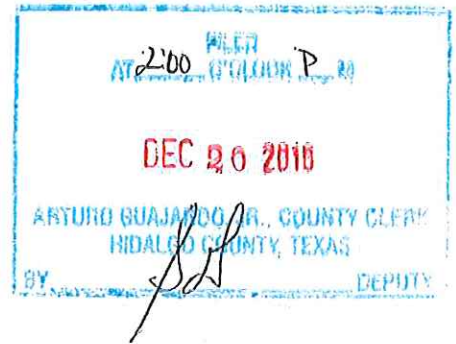 FILED
AT 2:00 O'CLOCK P M
DEC
ARTURO GUAJARDO, JR., COUNTY CLERK
HIDALGO COUNTY, TEXAS
BY DEPUTY